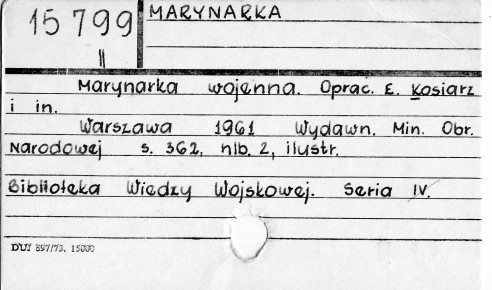 15 799
II
MARYNARKA
Marynarka wojenna. Oprac. E. Kosiarz
i in.
Warszawa 1961 Wydawn. Min. Obr.
Narodowej s. 362, nlb. 2, ilustr.
Biblioteka Wiedzy Wojskowej. Seria IV.
DUJ 897/73. 15000